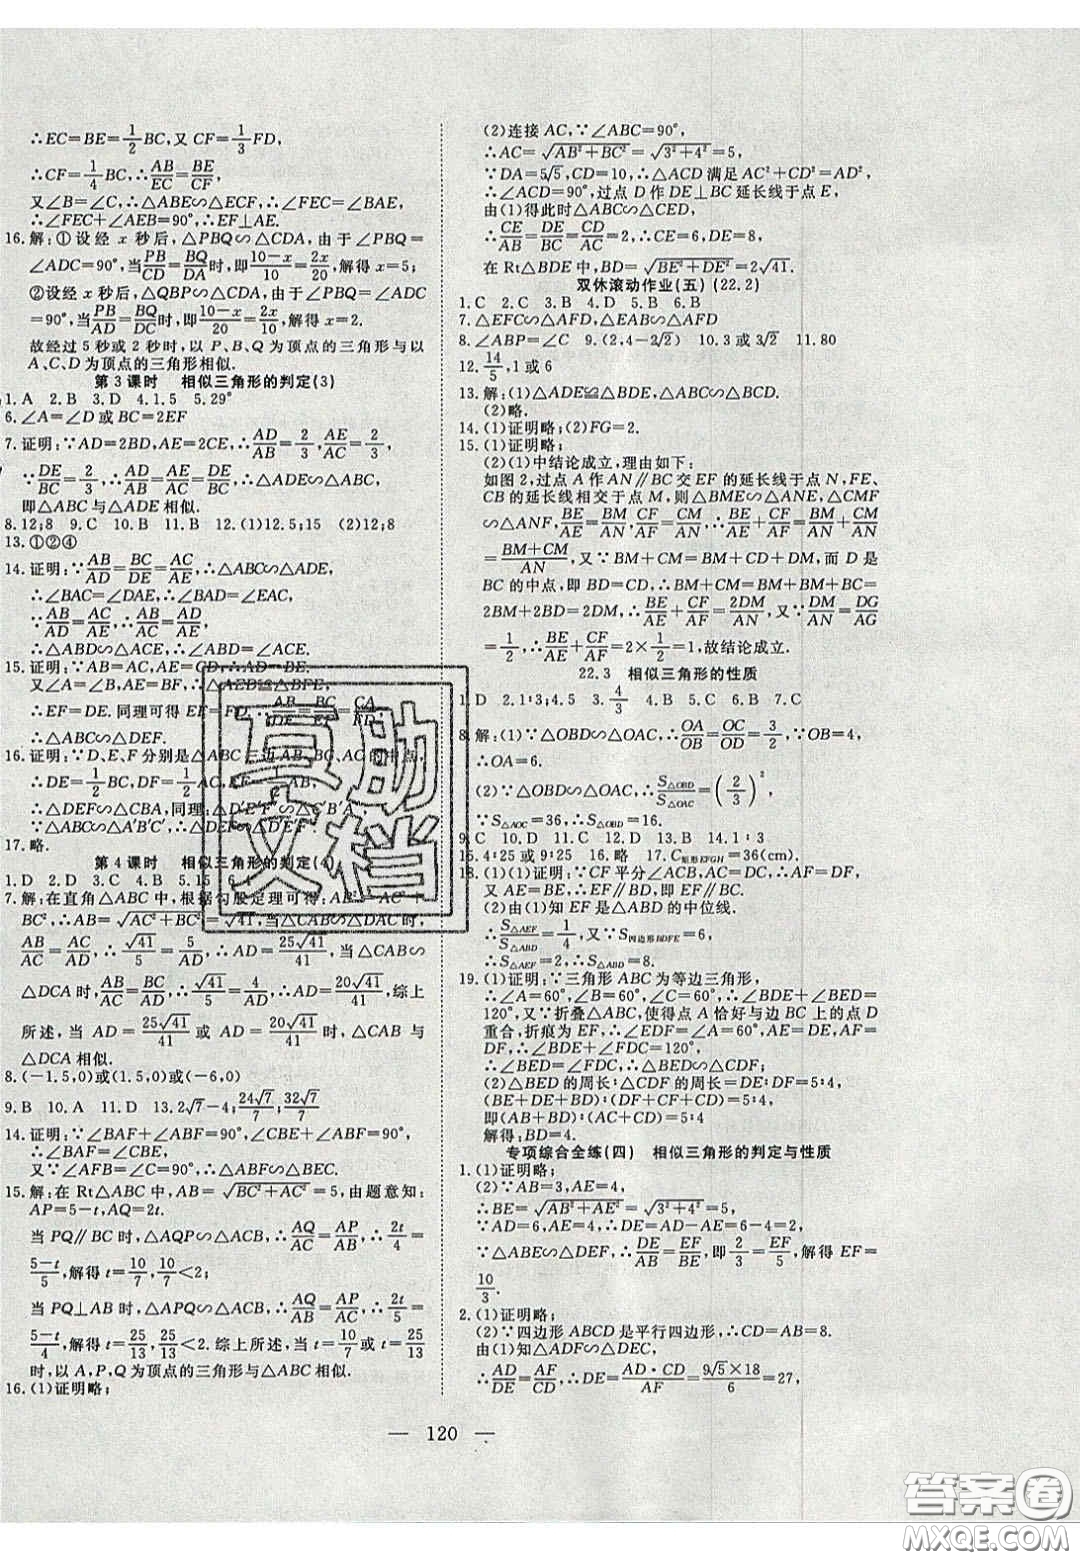 ∴EC=BE=1/2BC,又 CF=1/3FD,
∴CF=1/4BC,∴AB/EC=BE/CF,
又∠B=∠C,∴△ABE∽△ECF,∴∠FEC=∠BAE,
∴∠FEC+∠AEB=90°,∴EF⊥AE.
16.解:①设经 x 秒后,△PBQ∽△CDA,由于∠PBQ=
∠ADC=90°,当PB/CD=BQ/DA时,即(10-x)/10=2x/20,解得x=5;
②设经x秒后,△QBP∽△CDA,由于∠PBQ=∠ADC
=90°,当PB/AD=BQ/DC时,即(10-x)/20=2x/10,解得x=2.
故经过5秒或2秒时,以 P、B、Q 为顶点的三角形与以
A、C、D 为顶点的三角形相似.
第3课时 相似三角形的判定(3)
1.A 2.B 3.D 4.1.5 5.29°
6.∠A=∠D或BC=2EF
7.证明:∵AD=2BD,AE=2CE,∴AD/AB=2/3,AE/AC=2/3,
∵DE/BC=2/3,∴AD/AB=AE/AC=DE/BC,∴△ADE∽△ABC,
即△ABC与△ADE相似.
8.12;8 9.C 10.B 11.B 12.(1)12.5;15 (2)12;8
13.①②④
14.证明:∵AB/AD=BC/DE=AC/AE,∴△ABC∽△ADE,
∴∠BAC=∠DAE,∴∠BAD=∠CAE,
∵AB/AD=AC/AE,∴AB/AC=AD/AE,
∴△ABD∽△ACE,∴∠ABD=∠ACE.
15.证明:∵AB=AC,AE=CF,∴AD=BE.
又∠A=∠ABC,AE=BF,∴△AED≌△BFE,
∴EF=DE.同理可得 EF=FD,∵AB/DE=BC/EF=CA/FD,
∴△ABC∽△DEF.
16.证明:∵D、E、F分别是△ABC三边AB、BC、AC的中点,
∴DE=1/2BC,DF=1/2BC,EF=1/2AB,
∴△DEF∽△CBA,同理:△D′E′F′∽△C′B′A′,
∵△ABC∽△A′B′C′,∴△DEF∽△D′E′F′.
17.略.
第4课时 相似三角形的判定(4)
1.D 2.D 3.C 4.B 5.15 6.4
7.解:在直角△ABC中,根据勾股定理可得:AB²=AC²+
BC²,∴AB=√(AC²+BC²)=√41,当△CAB∽△DAC时,
AB/AC=AC/AD,∴√41/5=5/AD,∴AD=25√41/41,当△CAB∽
△DCA时,AB/AC=BC/AD,∴√41/5=4/AD,∴AD=20√41/41,综上
所述,当 AD=25√41/41或 AD=20√41/41时,△CAB 与
△DCA相似.
8.(-1.5,0)或(1.5,0)或(-6,0)
9.B 10.A 11.D 13.2√7-4;24√7/7;32√7/7
14.证明:∵∠BAF+∠ABF=90°,∠CBE+∠ABF=90°,
∴∠BAF=∠CBE,
又∵∠AFB=∠C=90°,∴△ABF∽△BEC.
15.解:在Rt△ABC中,AB=√(BC²+AC²)=5,由题意知:
AP=5-t,AQ=2t.
当 PQ∥BC时,△AQP∽△ACB,∴AQ/AC=AP/AB,∴2t/4=
(5-t)/5,解得 t=10/7,10/7<2;
当 PQ⊥AB时,△APQ∽△ACB,∴AQ/AB=AP/AC,∴2t/5=
(5-t)/4,解得 t=25/13,25/13<2.综上所述,当 t=10/7或 t=25/13
时,以A,P,Q为顶点的三角形与△ABC相似.
16.(1)证明略;
(2)连接AC,∵∠ABC=90°,
∴AC=√(AB²+BC²)=√(3²+4²)=5,
∵DA=5√5,CD=10,∴△ACD满足 AC²+CD²=AD²,
∴∠ACD=90°,过点 D 作 DE⊥BC延长线于点 E,
由(1)得此时△ABC∽△CED,
∴CE/AB=DE/BC=CD/AC=2,∴CE=6,DE=8,
在Rt△BDE中,BD=√(BE²+DE²)=2√41.
双休滚动作业(五) (22.2)
1.C 2.C 3.B 4.D 5.B 6.B
7.△EFC∽△AFD,△EAB∽△AFD
8.∠ABP=∠C 9.(2,4-2√2) 10.3或3√2 11.80
12.14/5,1或6
13.解:(1)△ADE≌△BDE,△ABC∽△BCD.
(2)略.
14.(1)证明略;(2)FG=2.
15.(1)证明略;
(2)(1)中结论成立,理由如下:
如图2,过点A作AN∥BC交EF的延长线于点N,FE,
CB的延长线相交于点M,则△BME∽△ANE,△CMF
∽△ANF,BE/AE=BM/AN,CF/AF=CM/AN,∴BE/AE+CF/AF=BM/AN+CM/AN
=(BM+CM)/AN,又∵BM+CM=BM+CD+DM,而 D 是
BC的中点,即 BD=CD,∴BM+CM=BM+BM+BC=
2BM+2BD=2DM,∴BE/AE+CF/AF=2DM/AN,又∵DM/AN=DG/GA
=1/2,∴BE/AE+CF/AF=2×1/2=1,故结论成立.
22.3 相似三角形的性质
1.D 2.1:3;4.5 3.4/3 4.B 5.C 6.B 7.C
8.解:(1)∵△OBD∽△OAC,∴OA/OB=OC/OD=3/2,∵OB=4,
∴OA=6.
(2)∵△OBD∽△OAC,∴S△OBD/S△OAC=(2/3)²,
∵S△AOC=36,∴S△OBD=16.
9.C 10.D 11.C 12.D 13.B 14.1:3
15.4:25或9:25 16.略 17.C矩形EFGH=36(cm).
18.(1)证明:∵CF平分∠ACB,DC=AC,∴AF=DF,
又AE=BE,∴EF∥BC.
(2)由(1)知 EF是△ABD的中位线.
∴S△AEF/S△ABD=1/4,又∵S四边形BDFE=6,
∴S△AEF=2,∴S△ABD=8.
19.(1)证明:∵三角形 ABC为等边三角形,
∴∠A=60°,∠B=∠C=60°,∴∠BDE+∠BED=
120°,又∵折叠△ABC,使得点A恰好与边BC上的点D
重合,折痕为EF,∴∠EDF=∠A=60°,AE=DE,AF=
DF,∴∠BDE+∠FDC=120°,
∴∠BED=∠FDC,∴△BED∽△CDF;
(2)△BED的周长:△CDF的周长=DE:DF=5:4,
(BE+DE+BD):(CD+DF+CF)=5:4,
即(AB+BD):(AC+CD)=5:4
解得:BD=4.
专项综合全练(四) 相似三角形的判定与性质
1.(1)证明略;
(2)∵AB=3,AE=4,
∴BE=√(AB²+AE²)=√(3²+4²)=5,
∵AD=6,AE=4,∴DE=AD-AE=6-4=2,
∵△ABE∽△DEF,∴DE/AB=EF/BE,即2/3=EF/5,解得 EF=
10/3.
2.(1)证明略;
(2)∵四边形ABCD是平行四边形,∴CD=AB=8.
由(1)知△ADF∽△DEC,
∴AD/DE=AF/CD,∴DE=AD·CD/AF=9√5×18/6=27,
— 120 —
互助
文档
答案圈
MXQE.COM